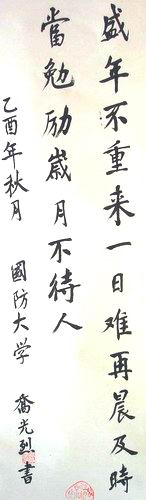 盛年不重来一日难再晨及時
當勉励歲月不待人
乙酉年秋月 國防大学 喬光烈書